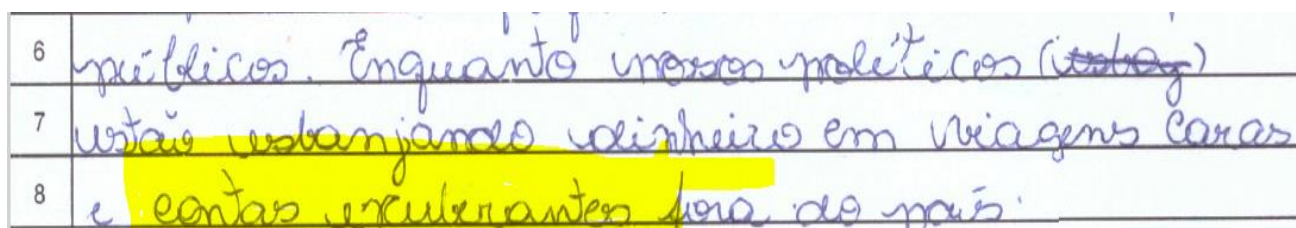 6 públicos. Enquanto nossos políticos (esbanj)
7 estão esbanjando dinheiro em viagens caras
8 e contas exuberantes fora do país.